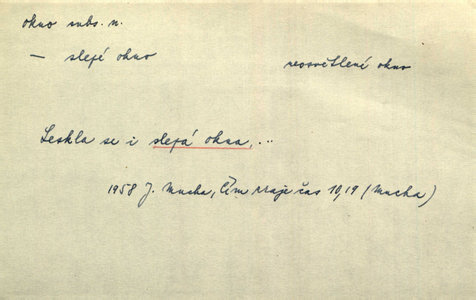 okno subs. n.
— slepé okno neosvětlené okno
Leskla se i slepá okna, ..
1958 J. Mucha, Čím zraje čas 10,19 (Mucha)